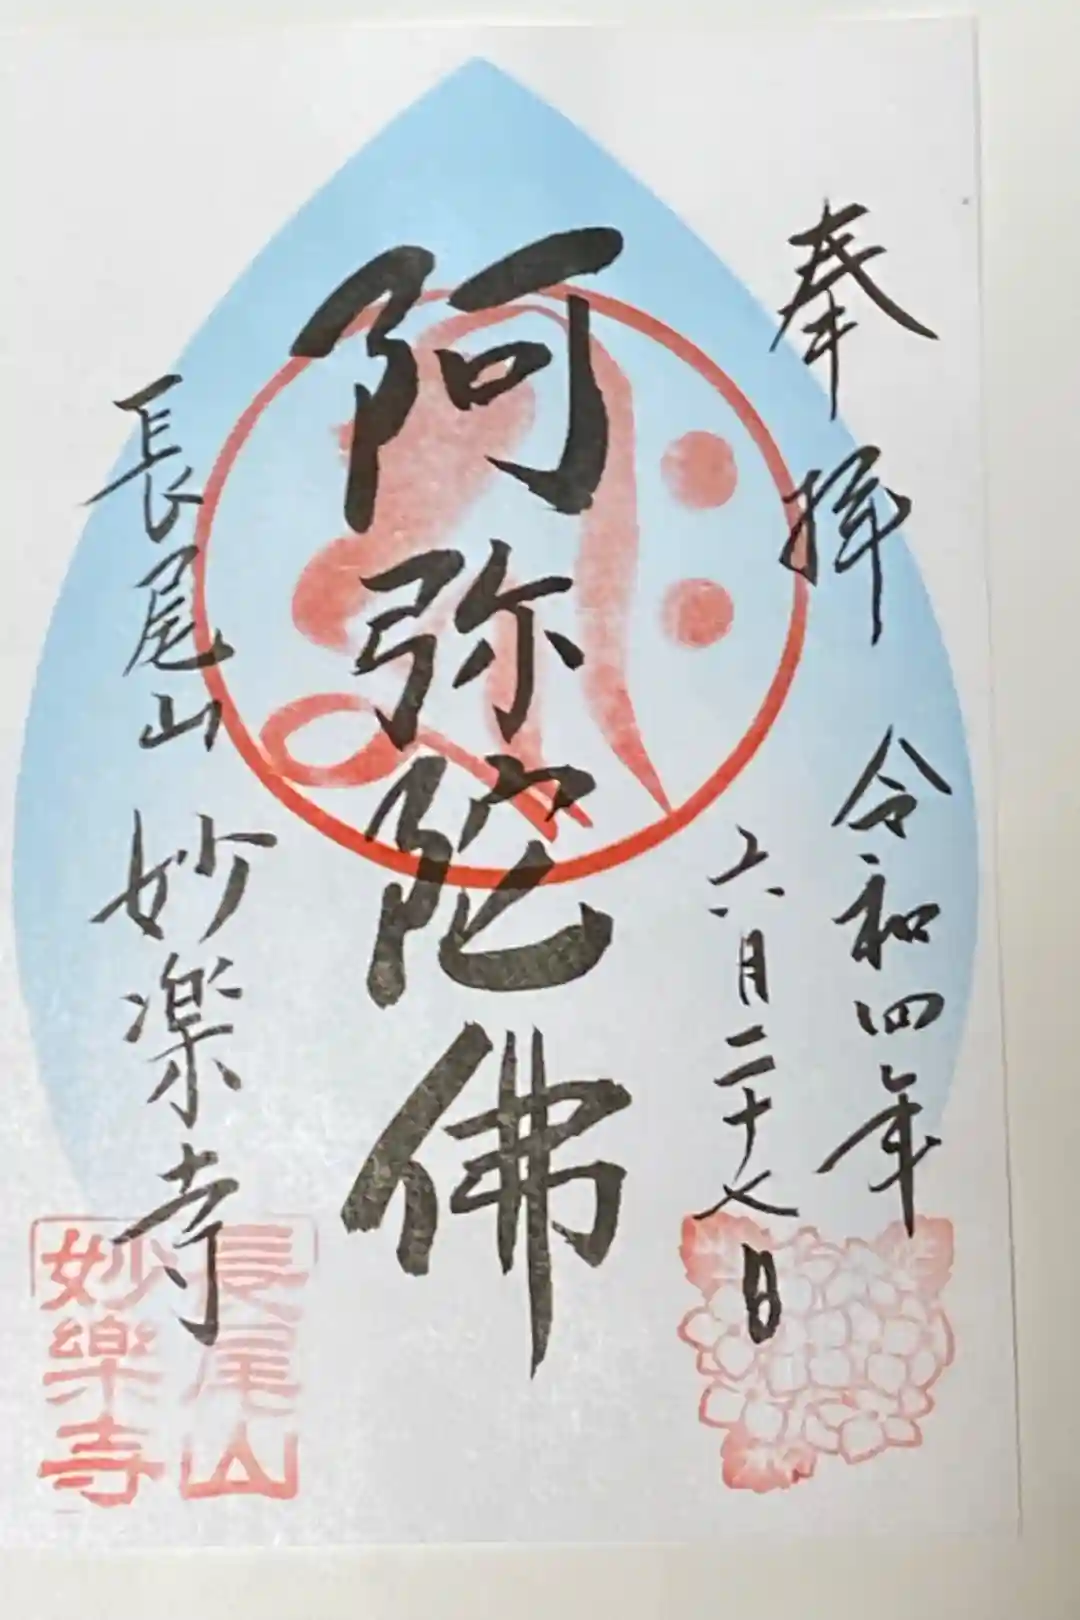 奉拝 令和四年
六月二十七日
阿弥陀佛
長尾山 妙楽寺
長尾山
妙樂寺